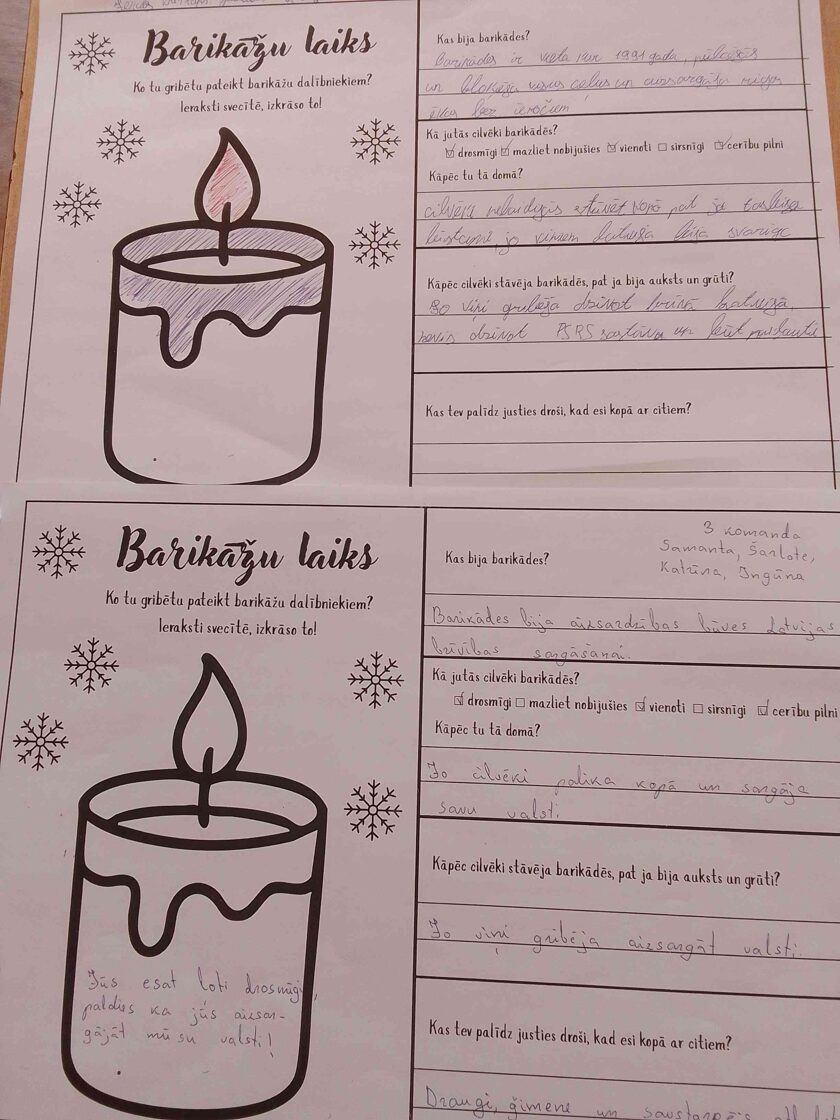 Barikāžu laiks
Ko tu gribētu pateikt barikāžu dalībniekiem?
Ieraksti svecītē, izkrāso to!
Kas bija barikādes?
Barikādes ir vieta kur 1991 gada, pulcējās
un bloķēja visus ceļus un aizsargāja
ēkas bez ieročiem
Kā jutās cilvēki barikādēs?
drosmīgi mazliet nobijušies vienoti sirsnīgi cerību pilni
Kāpēc tu tā domā?
cilvēki nebaidījās stāvēt kopā pat ja
jo viņiem bija svarīga
Kāpēc cilvēki stāvēja barikādēs, pat ja bija auksts un grūti?
Jo viņi gribēja dzīvot brīvā
nevis dzīvot PSRS sastāva un būt
Kas tev palīdz justies droši, kad esi kopā ar citiem?
Barikāžu laiks
Ko tu gribētu pateikt barikāžu dalībniekiem?
Ieraksti svecītē, izkrāso to!
Jūs esat ļoti drosmīgi,
paldies ka jūs aizsar-
gājāt mūsu valsti!
3 komanda
Samanta, Šarlote,
Katrīna, Ingūna
Kas bija barikādes?
Barikādes bija aizsardzības būves Latvijas
brīvības sargāšanai.
Kā jutās cilvēki barikādēs?
drosmīgi mazliet nobijušies vienoti sirsnīgi cerību pilni
Kāpēc tu tā domā?
Jo cilvēki palika kopā un sargāja
savu valsti
Kāpēc cilvēki stāvēja barikādēs, pat ja bija auksts un grūti?
Jo viņi gribēja aizsargāt valsti.
Kas tev palīdz justies droši, kad esi kopā ar citiem?
Draugi, ģimene un